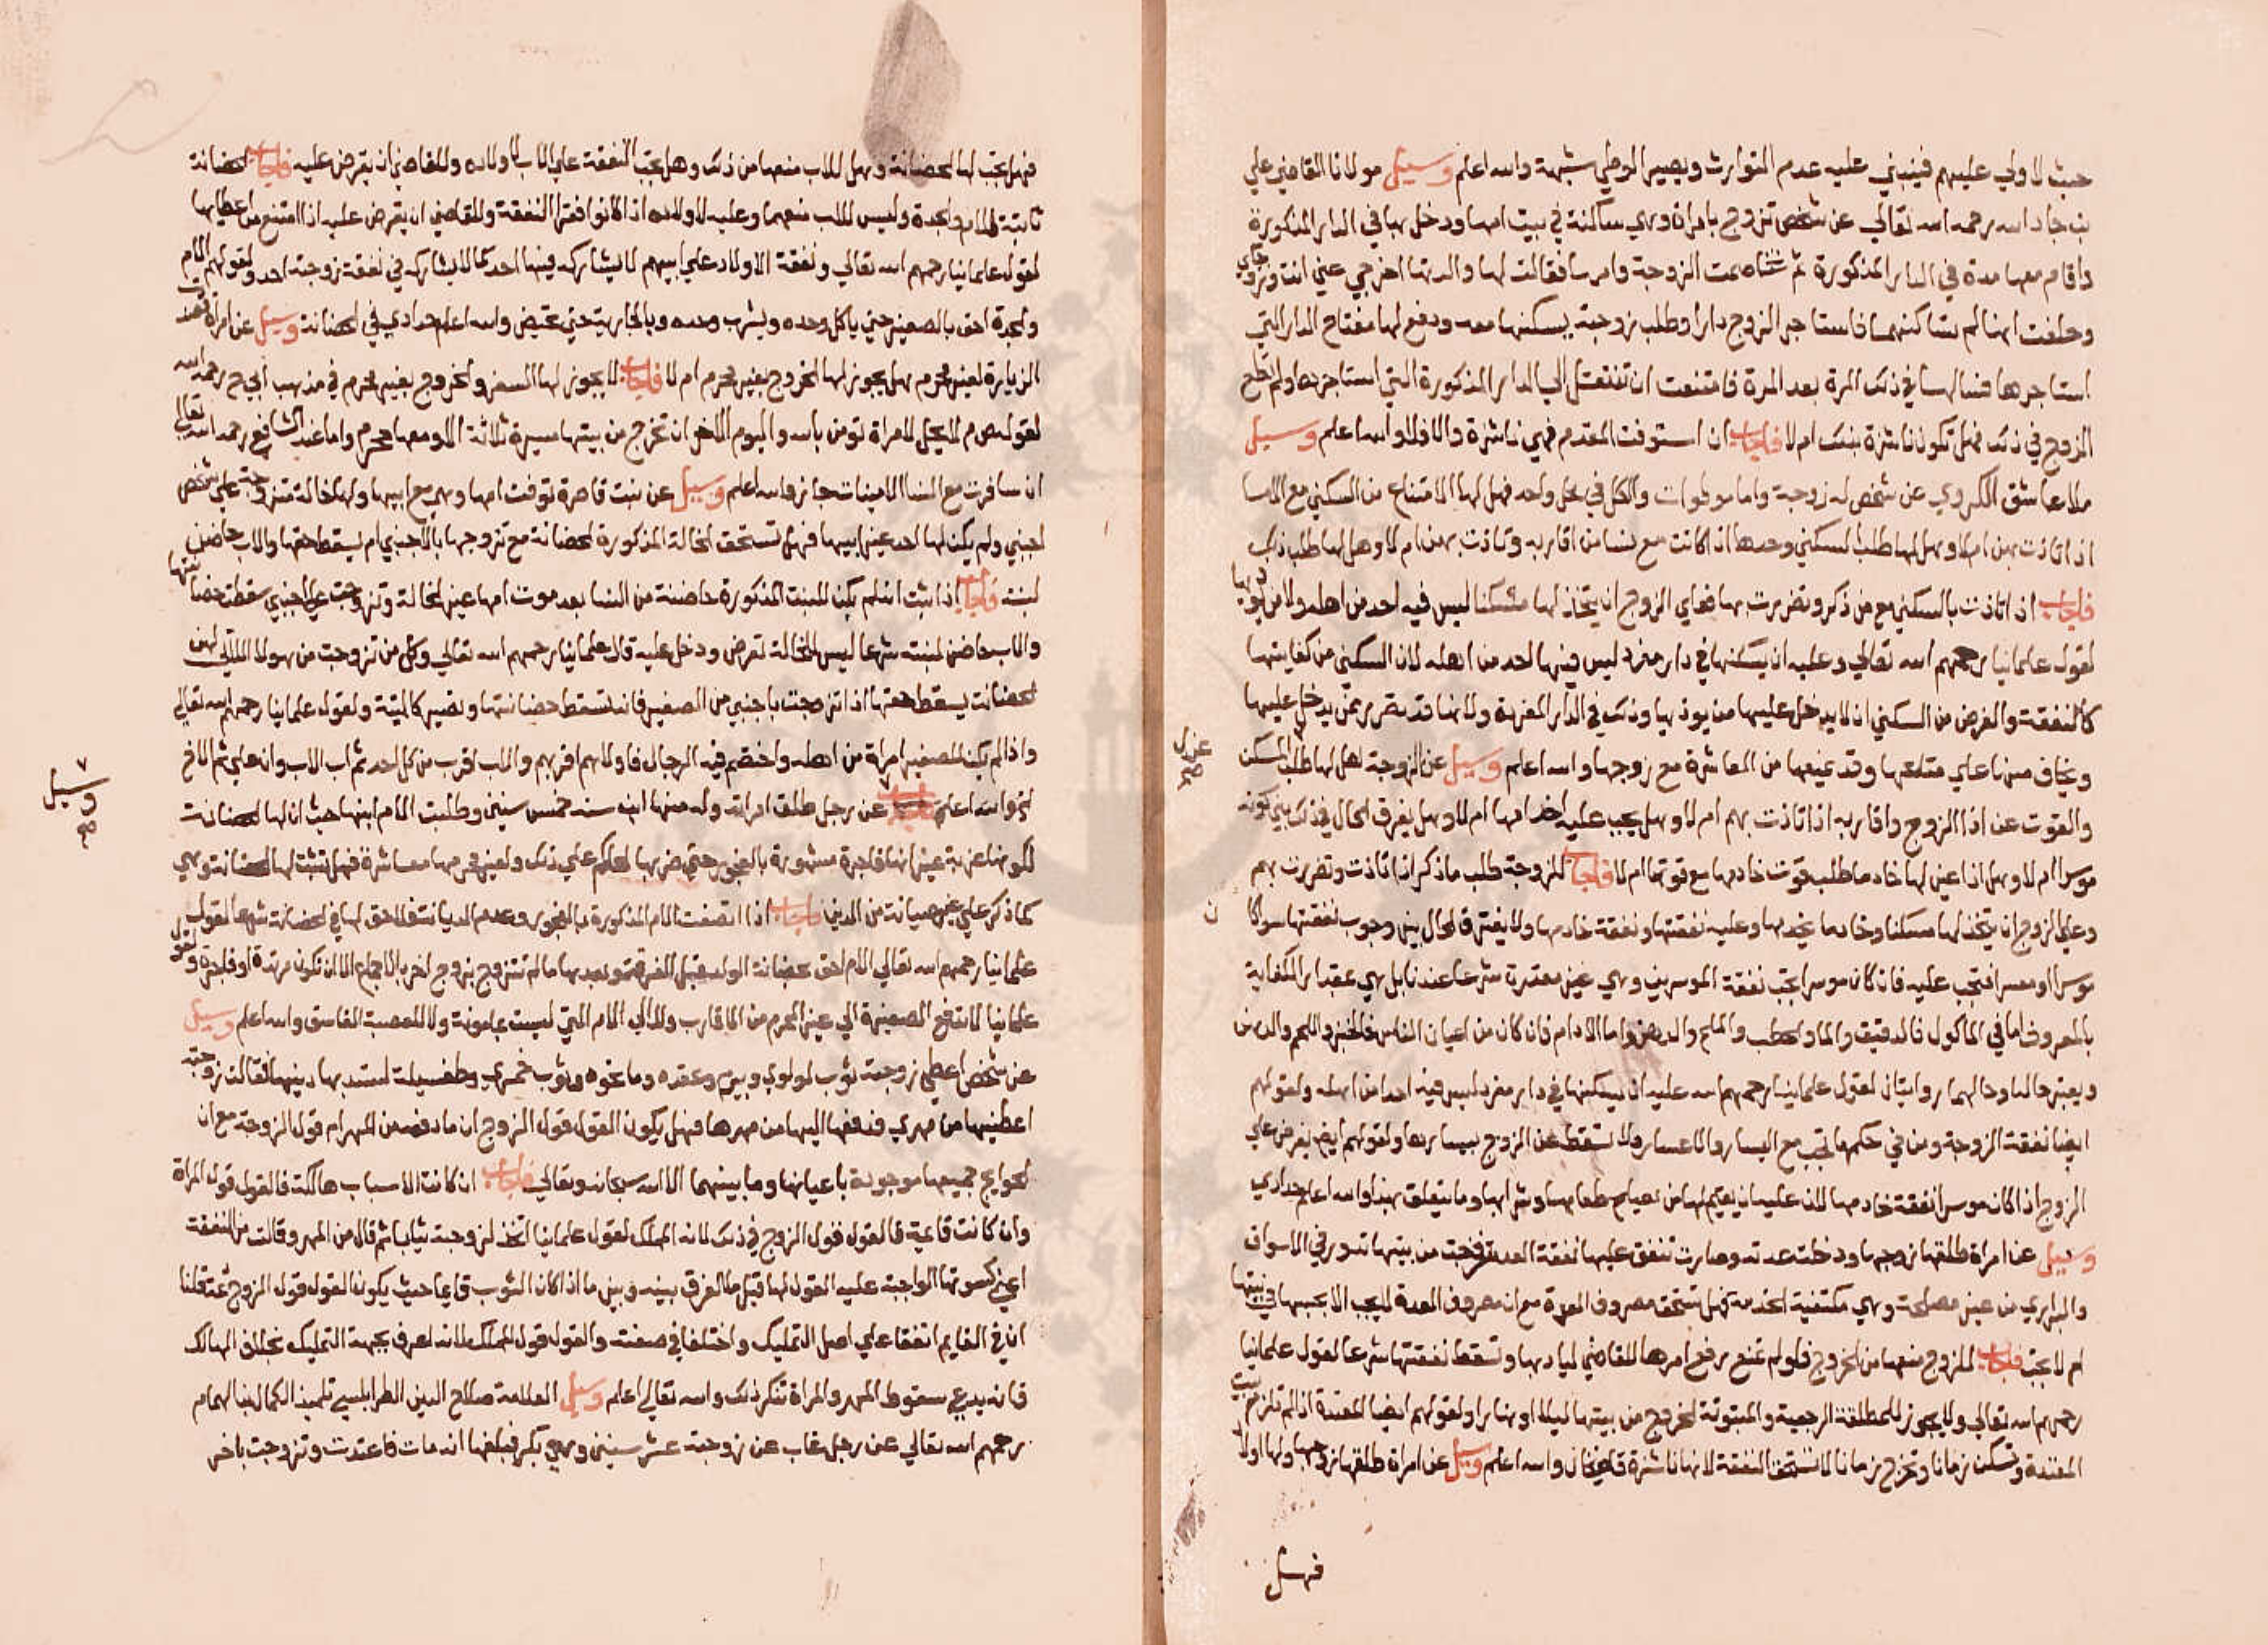 حيث لا ولي عليهم فينبني عليه عدم التوارث ويصير الوطي شبهة والله اعلم وسيل مولانا القاضي علي
بن جاد الله رحمه الله تعالي عن شخص تزوج بامراة وهي ساكنة في بيت امها ودخل بها في الدار المذكورة
واقام معها مدة في الدار المذكورة ثم تخاصمت الزوجة وامرسا فقالت لها والدتها اخرجي عني انت وزوجك
وحلفت انها لم تساكنهما فاستاجر الزوج دارا وطلب زوجته يسكنها معه ودفع لها مفتاح الدار التي
استاجرها فسالها في ذلك المرة بعد المرة فامتنعت ان تنتقل الي الدار المذكورة التي استاجرها ولم تطع
الزوج في ذلك فهل تكون ناشزة بذلك ام لا فاجاب ان استوفت المقدم فهي ناشزة والا فلا والله اعلم وسيل
ملا عاشق الكردي عن شخص له زوجة واما موطوات والكل في محل واحد فهل لها الامتناع من السكني مع الاما
اذا تاذت بهن ام لا وهل لها طلب السكني وحدها اذا كانت مع نسا من اقاربه وتاذت بهن ام لا وهل لها طلب ذلك
فاجاب اذا تاذت بالسكني مع من ذكر وتضررت بها فعلي الزوج ان يتخذ لها مسكنا ليس فيه احد من اهله ولا من
لقول علمائنا رحمهم الله تعالي وعليه ان يسكنها في دار مفردة ليس فيها احد من اهله لان السكني من كفايتها
كالنفقة والغرض من السكني ان لا يدخل عليها من يوذيها وذلك في الدار المفردة ولانها قد تتضرر بمن يدخل عليها
ويخاف منها علي متاعها وقد يمنعها من المعاشرة مع زوجها والله اعلم وسيل عن الزوجة هل لها طلب المسكن
والقوت عن اذا الزوج واقاربه اذا تاذت بهم ام لا وهل يجب عليه اخدامها ام لا وهل يفرق الحال في ذلك بين كونه
موسرا ام لا وهل اذا عين لها خادما طلب قوت خادمها مع قوتها ام لا فاجاب للزوجة طلب ما ذكر اذا تاذت وتضررت بهم
وعلي الزوج ان يتخذ لها مسكنا وخادما يخدمها وعليه نفقتها ونفقة خادمها ولا يفترق الحال بين وجوب نفقتها سوا كان
موسرا او معسرا فتجب عليه فان كان موسرا يجب نفقة الموسرين وهي غير مقدرة شرعا عندنا بل هي بمقدار الكفاية
بالمعروف اما في الماكول فالدقيق والما والحطب والملح والدهن واما الادام فان كان من اعيان الناس فالخبز واللحم والدهن
ويعتبر حاله وحالهما روايتان لقول علمائنا رحمهم الله عليه ان يسكنها في دار مفردة ليس فيه احدا من اهله ولقولهم
ايضا نفقة الزوجة ومن في حكمها تجب مع اليسار والاعسار ولا تسقط عن الزوج بيسارها ولقولهم ايضا يفرض علي
الزوج اذا كان موسرا نفقة خادمها لان عليه ان يقيم لها من يصلح طعامها وشرابها وما يتعلق بهذا والله اعلم حدادي
وسيل عن امراة طلقها زوجها ودخلت عدته وصارت تنفق عليها نفقة العدة فخرجت من بيتها تدور في الاسواق
والبراري من غير مصلحة وهي مكتفية الخدمة فهل تستحق مصروف العدة مع ان مصروف العدة لا يجب الا بحبسها في بيتها
ام لا يجب فاجاب للزوج منعها من الخروج فلو لم تمنع يرفع امرها للقاضي ليادبها وتسقط نفقتها شرعا لقول علمائنا
رحمهم الله تعالي ولا يجوز للمطلقة الرجعية والمبتوتة الخروج من بيتها ليلا او نهارا ولقولهم ايضا المعتدة اذا لم تلزم بيت
العدة وتسكن زمانا وتخرج زمانا لا تستحق النفقة لانها ناشزة قاضيخان والله اعلم وسيل عن امراة طلقها زوجها ولها اولاد
فهل
فهل يجب لها الحضانة وهل للاب منعها من ذلك وهل تجب النفقة علي الاب لاولاده وللقاضي ان يفرض عليه فاجاب الحضانة
ثابتة للام والجدة وليس للاب منعهما وعليه لاولاده اذا كانوا فقرا النفقة وللقاضي ان يفرض عليه اذا امتنع من اعطائها
لقول علمائنا رحمهم الله تعالي ونفقة الاولاد علي ابيهم لا يشاركه فيها احد كما لا يشاركه في نفقة زوجته احد ولقولهم الام
والجدة احق بالصغير حتي ياكل وحده ويشرب وحده وبالجارية حتي تحيض والله اعلم حدادي في الحضانة وسيل عن امراة قصد
الزيارة لغير محرم هل يجوز لها الخروج بغير محرم ام لا فاجاب لا يجوز لها السفر والخروج بغير محرم في مذهب ابي ح رحمه الله
لقوله ص م لا يحل لامراة تومن بالله واليوم الاخر ان تخرج من بيتها مسيرة ثلاثة الا ومعها محرم واما عند الشافع رحمه الله تعالي
ان سافرت مع النسا الامينات جاز والله اعلم وسيل عن بنت قاصرة توفت امها وهي مع ابيها ولها خالة متزوجة علي شخص
اجنبي ولم يكن لها احد غير ابيها فهل تستحق الخالة المذكورة الحضانة مع تزوجها بالاجنبي ام يسقط حقها والاب حاضن
لبنته فاجاب اذا ثبت انه لم يكن للبنت المذكورة حاضنة من النسا بعد موت امها غير الخالة وتزوجت علي اجنبي سقطت حضانتها
والاب حاضن لبنته شرعا ليس للخالة تعرض ودخل عليه قال علمائنا رحمهم الله تعالي وكل من تزوجت من هولا اللاتي لهن
الحضانة يسقط حقها اذا تزوجت باجنبي من الصغير فانه تسقط حضانتها وتصير كالميتة ولقول علمائنا رحمهم الله تعالي
واذا لم يكن للصغير امراة من اهله واختصم فيه الرجال فاولاهم اقربهم والاب اقرب من كل احد ثم اب الاب وان علي ثم الاخ
الخ والله اعلم عن رجل طلق امراته وله منها ابن سنه خمس سنين وطلبت الام ابنها حيث ان لها الحضانة
لكونها عزبة غير انها فاجرة مشهورة بالفجور حتي ضربها الحاكم علي ذلك ولغير محرمها معاشرة فهل تثبت لها الحضانة وهي
كما ذكر علي غير صيانة من الدين فاجاب اذا اتصفت الام المذكورة بالفجور وعدم الديانة فلا حق لها في الحضانة شرعا لقول
علمائنا رحمهم الله تعالي الام احق بحضانة الولد قبل الفرقة وبعدها ما لم تتزوج بزوج اخر بالاجماع الا ان تكون مرتدة او فاجرة ولقول
علمائنا لا تدفع الصغيرة الي غير المحرم من الاقارب ولا الي الام التي ليست بمامونة ولا للعصبة الفاسق والله اعلم وسيل
عن شخص اعطي زوجته ثوب لولوي وبيرم وعقده وما نحوه وثوب خمري وطفسيلة لتستد بها دينها فقالت زوجته
اعطنيها من مهري فدفعها اليها من مهرها فهل يكون القول قول الزوج ان ما دفعه من المهر ام قول الزوجة مع ان
الحوايج جميعها موجودة باعيانها وما بينهما الا الله سبحانه وتعالي فاجاب ان كانت الاسباب هالكة فالقول قول المراة
وان كانت قائمة فالقول قول الزوج في ذلك لانه المملك لقول علمائنا اتخذ لزوجته ثيابا ثم قال من المهر وقالت من النفقة
اعني كسوتها الواجبة عليه القول لها قيل ما الفرق بينه وبين ما اذا كان الثوب قائما حيث يكون القول قول الزوج ثمة قلنا
ان في القايم اتفقا علي اصل التمليك واختلفا في صفته والقول قول المملك لانه اعرف بجهة التمليك بخلاف الهالك
فانه يدعي سقوط المهر والمراة تنكر ذلك والله تعالي اعلم وسيل العلامة صلاح الدين الطرابلسي تلميذ الكمال بن الهمام
رحمهم الله تعالي عن رجل غاب عن زوجته عشر سنين وهي بكر فبلغها انه مات فاعتدت وتزوجت باخر
وسيل
صح